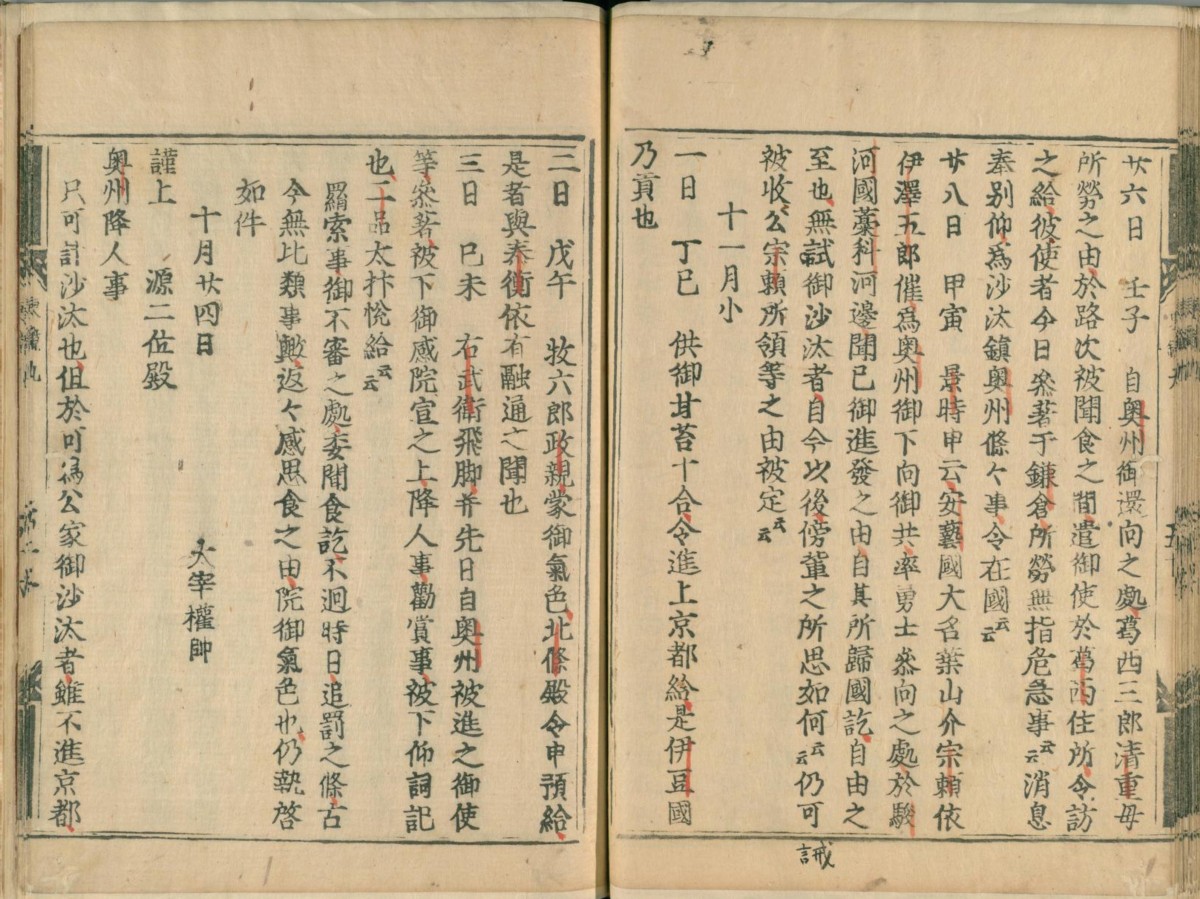 廿六日 壬子 自奥州御還向之處葛西三郎清重母
所勞之由於路次被聞食之間遣御使於葛西住所令訪
之給彼使者今日叅著于鎌倉所勞無指危急事云云消息
奉別仰爲沙汰鎮奥州條々事令在國云云
廿八日 甲寅 景時申云安藝國大名葉山介宗頼依
伊澤五郎催爲奥州御下向御共率勇士叅向之處於駿
河國藁科河邊聞已御進發之由自其所歸國訖自由之
至也無誡御沙汰者自今以後傍輩之所思如何云云仍可
被收公宗頼所領等之由被定云云
十一月小
一日 丁巳 供御甘苔十合令進上京都給是伊豆國
乃貢也
誡
二日 戊午 牧六郎政親蒙御氣色北條殿令申預給
是者與泰衡依有融通之聞也
三日 巳未 右武衛飛脚并先日自奥州被進之御使
等叅著被下御感院宣之上降人事勸賞事被下仰詞記
也二品太抃悅給云云
𦌾索事御不審之處委聞食訖不廻時日追罰之條古
今無比類事歟返々感思食之由院御氣色也仍執啓
如件
十月廿四日 大宰權帥
謹上 源二位殿
奥州降人事
只可計沙汰也但於可爲公家御沙汰者雖不進京都